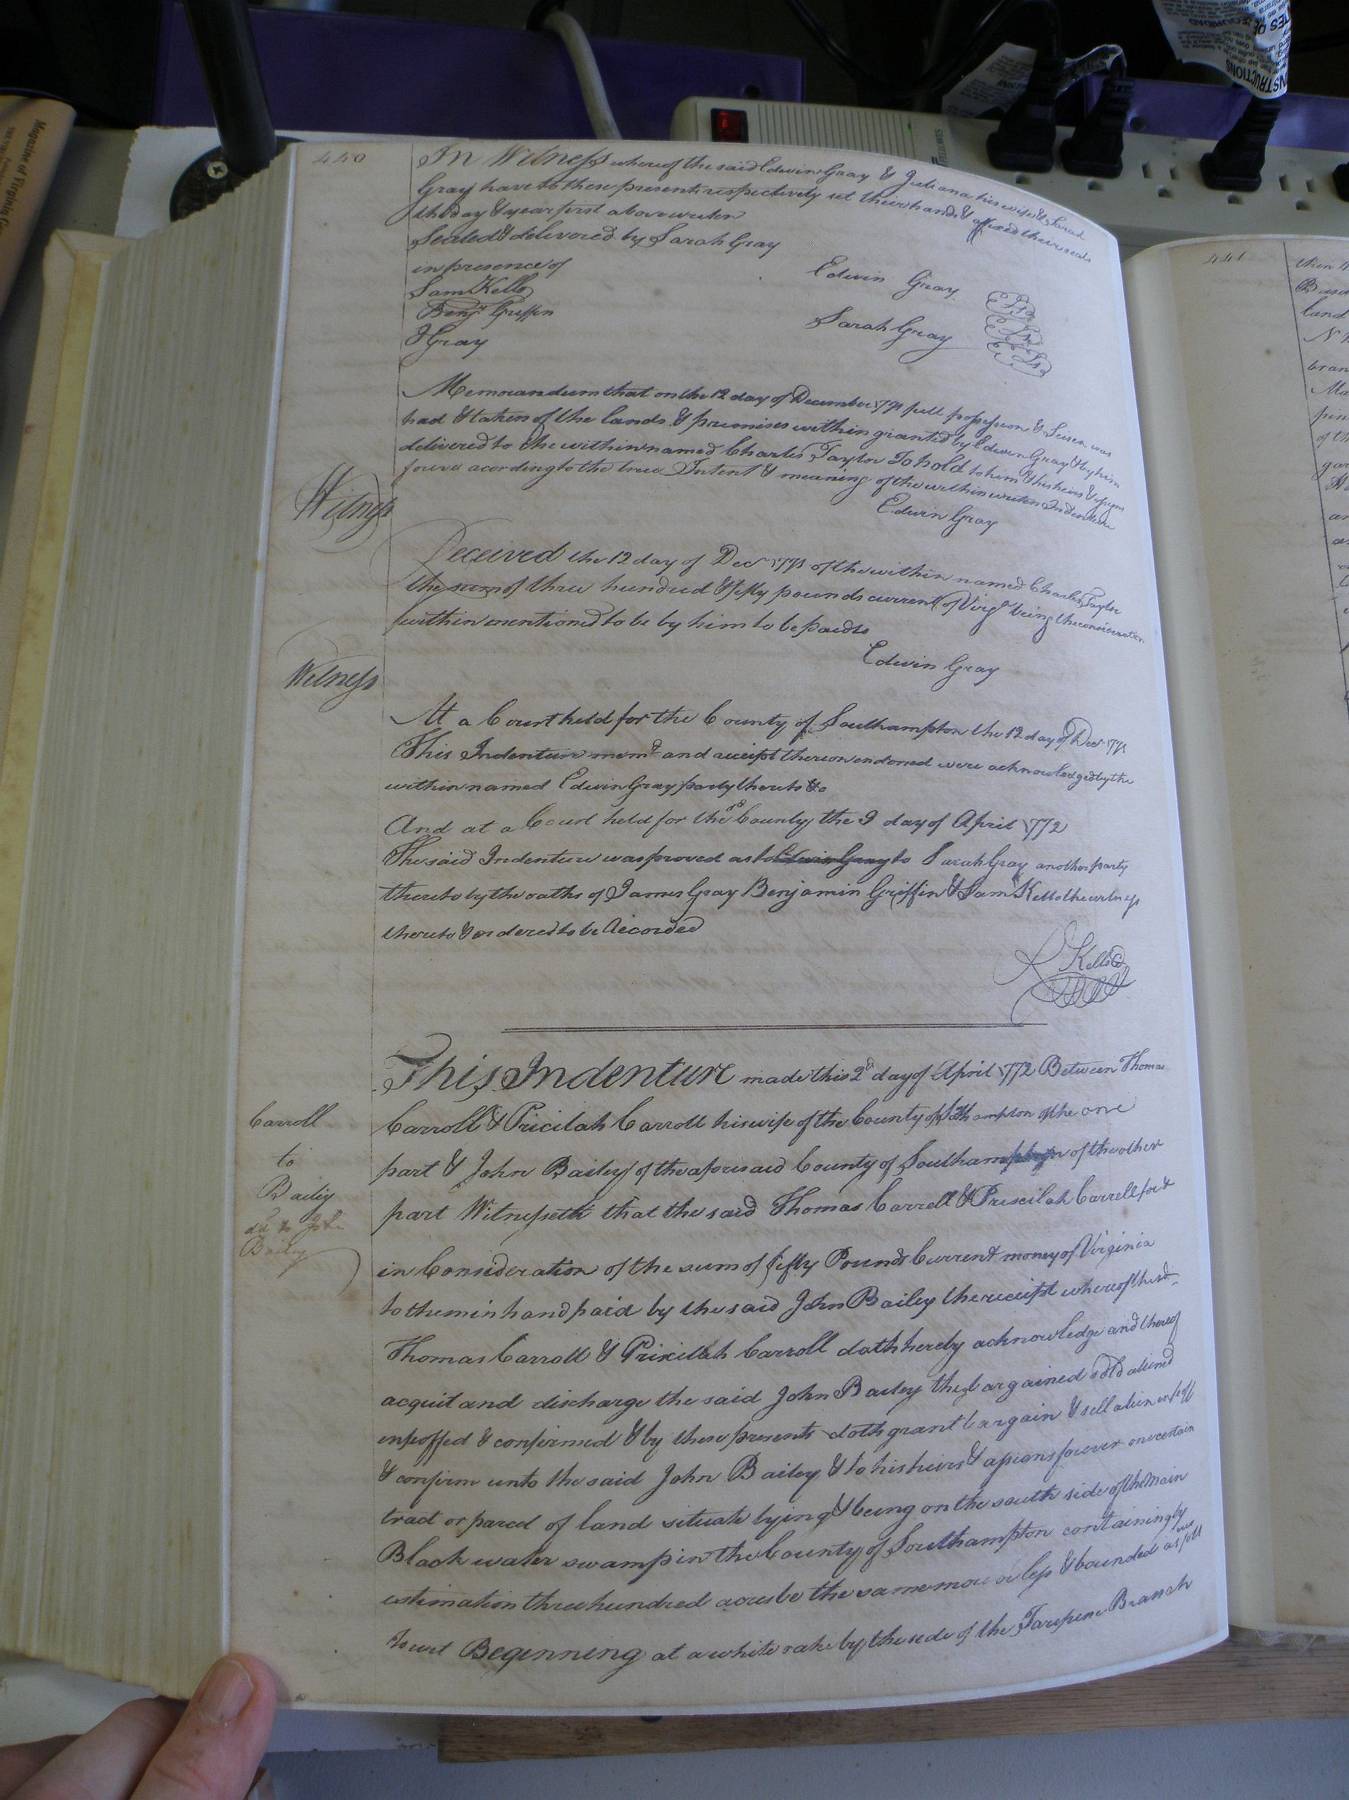 440
In Witness whereof the said Edwin Gray & Juliana his wife & Sarah
Gray have to these presents respectively set their hands & affixed their seals
the day & year first above written
Sealed & delivered by Sarah Gray
in presence of
Edwin Gray
Sam Kello
Benj Griffin
Sarah Gray
J Gray
Memorandum that on the 12 day of December 1771 full possession & Seisen was
had & taken of the lands & premises within granted by Edwin Gray & by him
delivered to the within named Charles Taylor To hold to him & his heirs & assigns
forever according to the true Intent & meaning of the within written Indenture
Edwin Gray
Witness
Received the 12 day of Decr 1771 of the within named Charles Taylor
the sum of three hundred & fifty pounds current of Virga being the consideration
within mentioned to be by him to be paid
Edwin Gray
Witness
At a Court held for the County of Southampton the 12 day of Decr 1771
This Indenture memd and receipt thereon endorsed were acknowledged by the
within named Edwin Gray party thereto &c
And at a Court held for the sd County the 9 day of April 1772
The said Indenture was proved as to Edwin Gray to Sarah Gray another party
thereto by the oaths of James Gray Benjamin Griffin & Sam Kello the witness
thereto & ordered to be Recorded
Kello
This Indenture made this 2d day of April 1772 Between Thomas
Carroll & Pricilah Carroll his wife of the County of Sthampton of the one
part & John Bailey of the aforesaid County of Southampton of the other
part Witnesseth that the said Thomas Carrell & Priscilah Carrell for &
Carroll
to
Baily
dd to John
Bailey
in Consideration of the sum of fifty Pounds Current money of Virginia
to them in hand paid by the said John Bailey the receipt whereof the sd
Thomas Carroll & Priscillah Carroll doth hereby acknowledge and thereof
acquit and discharge the said John Bailey bargained sold aliened
enfeoffed & confirmed & by these presents doth grant bargain & sell alien enfeoff
& confirm unto the said John Bailey & to his heirs & assigns forever one certain
tract or parcel of land situate lying & being on the south side of the Main
Black water swamp in the County of Southampton containing by
estimation three hundred acres be the same more or less & bounded as foll
to wit Beginning at a white oake by the side of the Branch
441
land